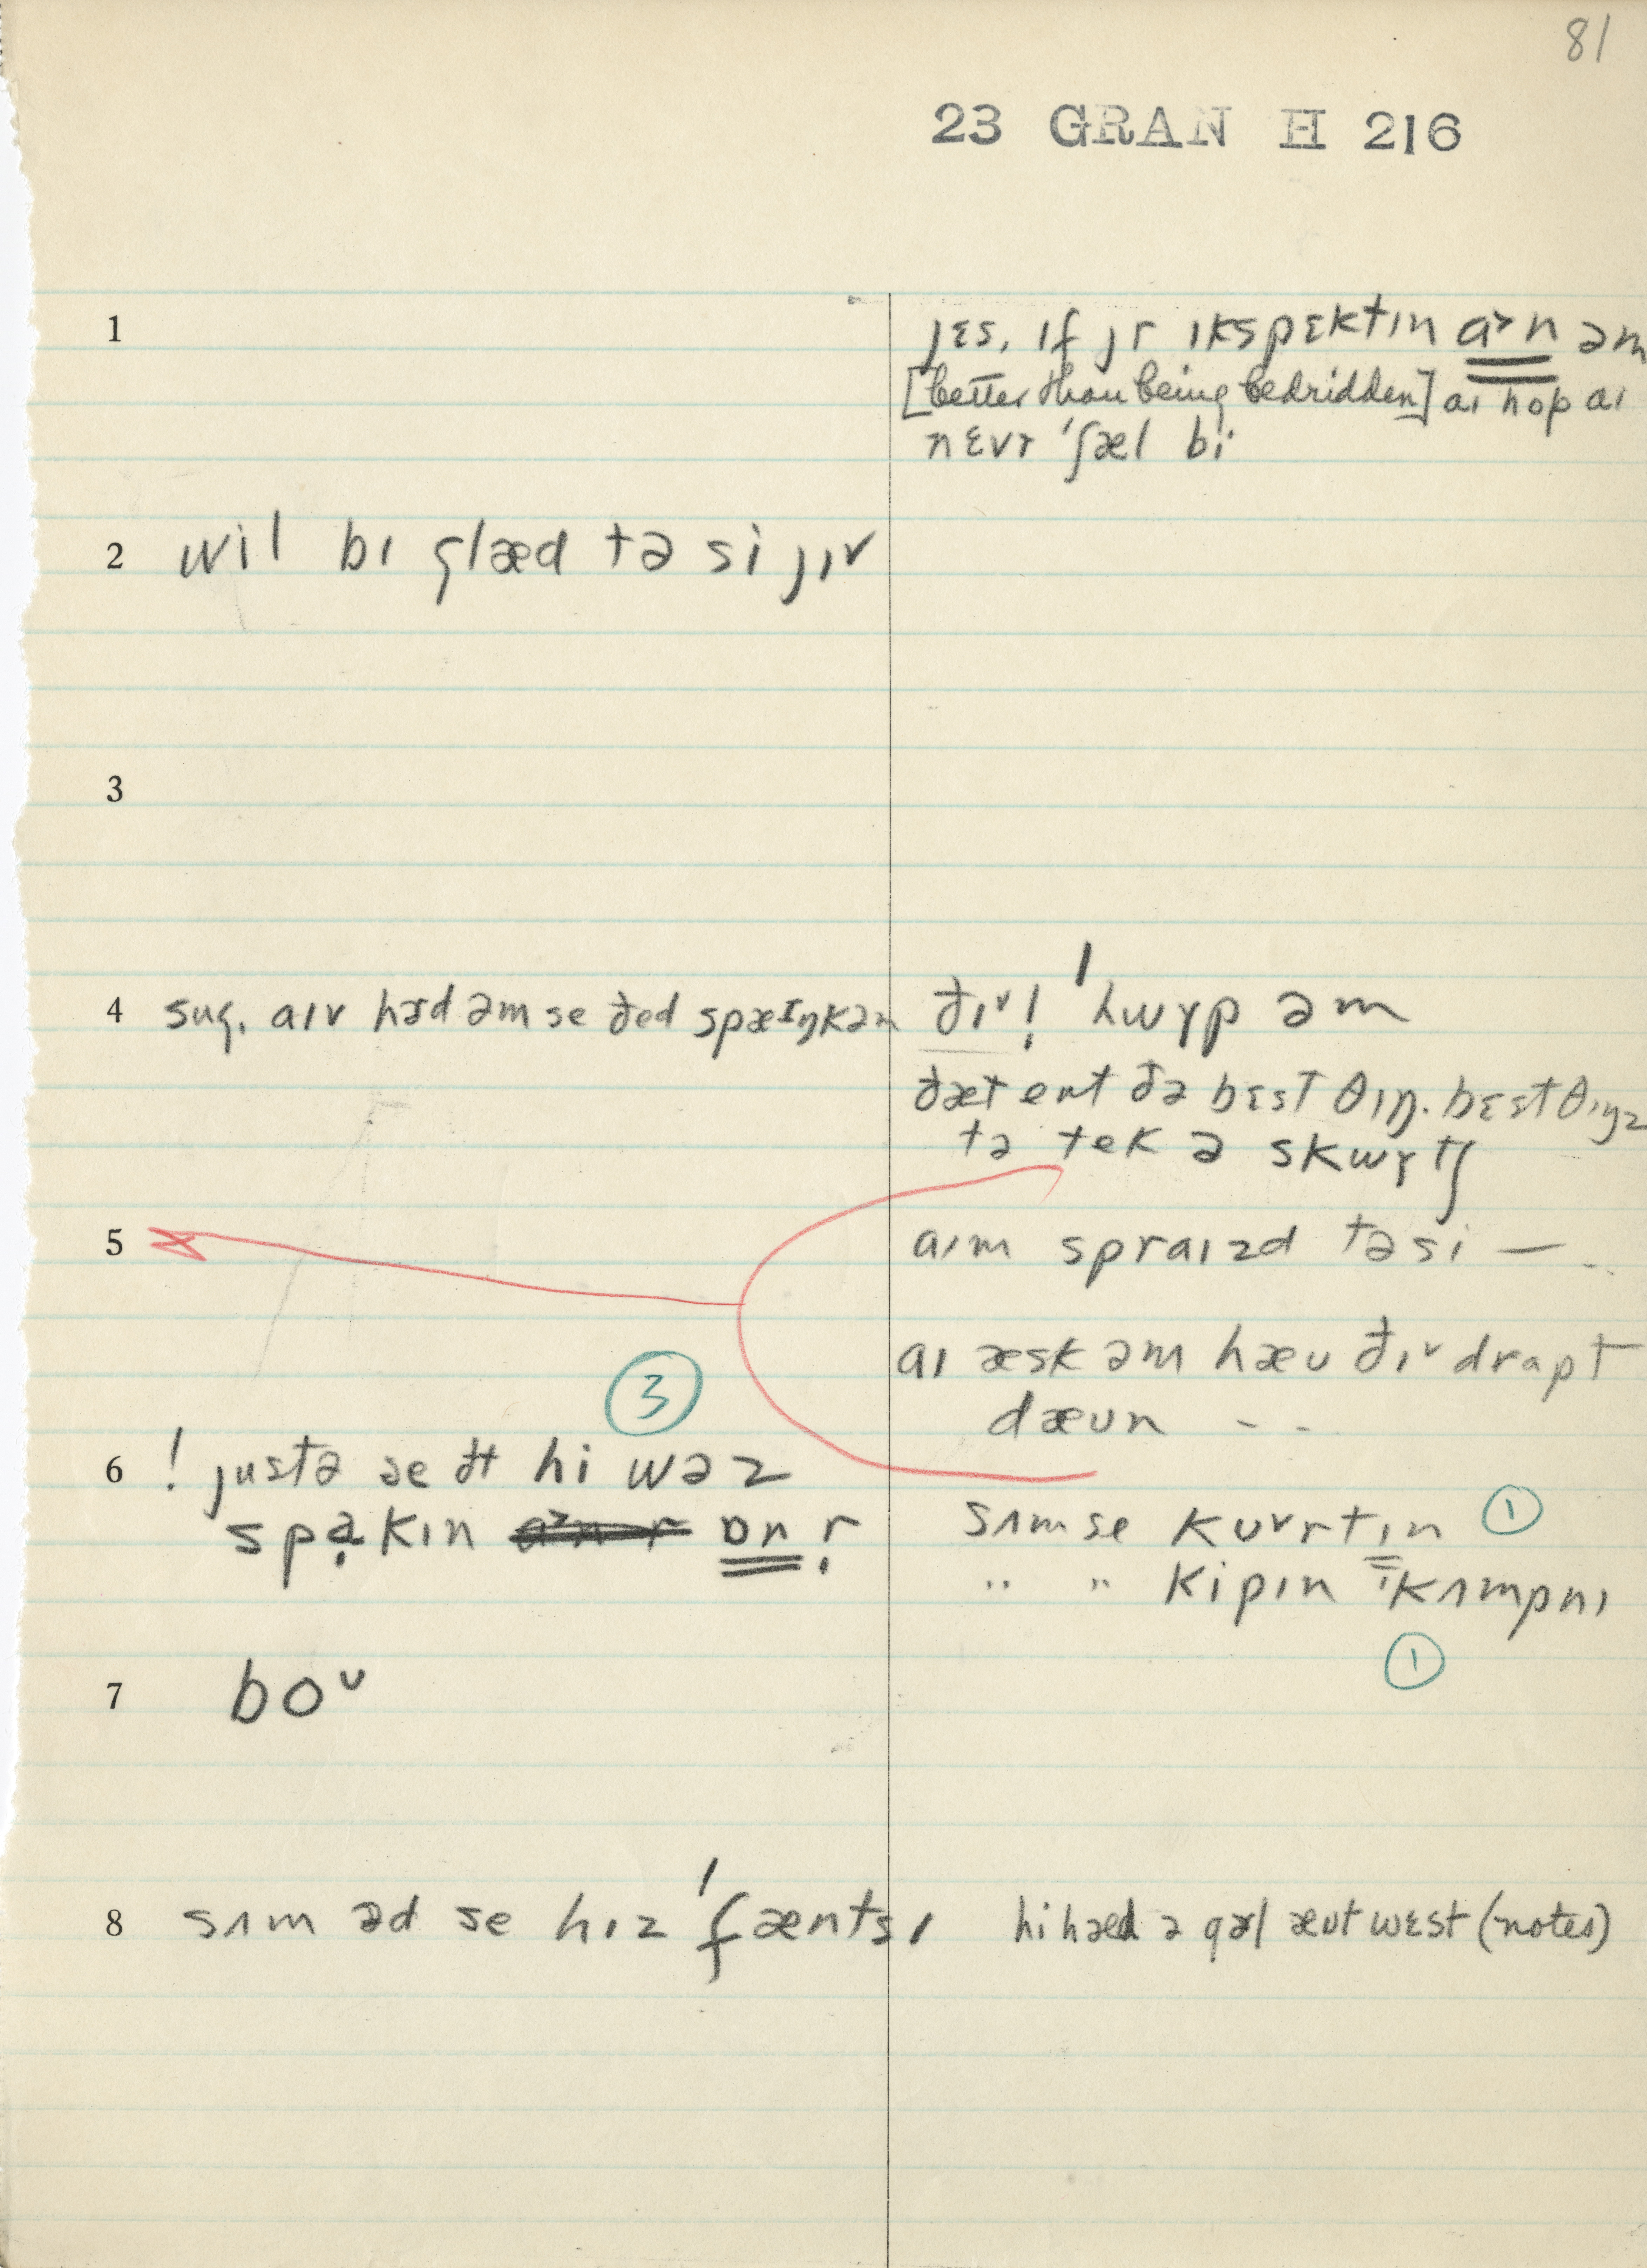 81
23 GRAN H 216
1
jɛs, ɪf jr ɪkspɛktɪn a˃n əm
[better than being bedridden] aɪ hop aɪ
nɛvɚ 'ʃæl bi
2 wil bɪ glæd tə si jɪv
3
4 sug. aɪv hɚd əm se ðed spæɪŋkəm
ðɪv! 'hwɤp əm
ðæt ent ðə bɛst θɪŋ. bɛst θɪŋz
tə tek ə skwɤtʃ
5
aɪm spraɪzd tə si —
aɪ æsk əm hæu ðɪv drapt
dæun - -
3
6 ! justə se ðt hi wəz
spạkɪn ɒn r
sʌm se kuvrtɪn 1
" " kipɪn kʌmpnɪ
1
7 boᵘ
8 sʌm əd se hɪz 'fæntsɪ
hi hæd ə gɚl æut wɛst (notes)